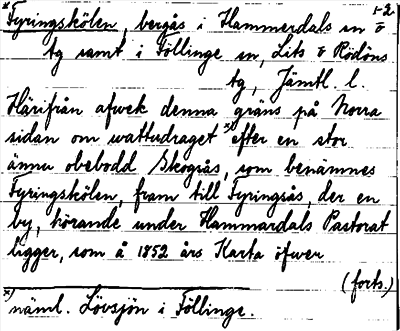 *Fyringskölen, bergås i Hammerdals sn o 1-2
tg samt i Föllinge sn, Lits o Rödöns
tg, Jämtl. l.
Härifrån afwek denna gräns på Norra
sidan om wattudraget x) efter en stor
ännu obebodd Skogsås, som benämnes
Fyringskölen, fram till Fyringsås, der en
by, hörande under Hammardals Pastorat
ligger, som å 1852 års Karta öfwer
(forts.)
x) näml. Lövsjön i Föllinge.